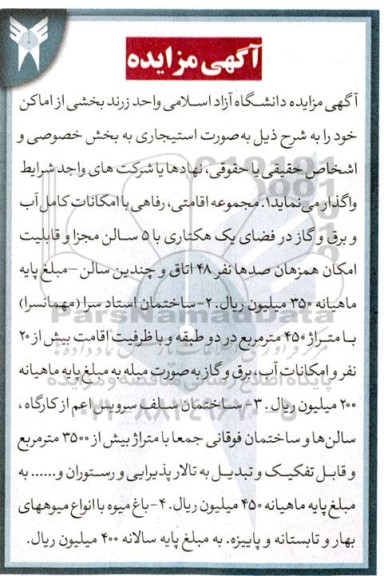 آگهی مزایده
آگهی مزایده دانشگاه آزاد اسلامی واحد زرند بخشی از اماکن
خود را به شرح ذیل به‌صورت استیجاری به بخش خصوصی و
اشخاص حقیقی یا حقوقی، نهادها یا شرکت های واجد شرایط
واگذار می نماید۱. مجموعه اقامتی، رفاهی با امکانات کامل آب
و برق و گاز در فضای یک هکتاری با ۵ سالن مجزا و قابلیت
امکان همزهان صدها نفر ۴۸ اتاق و چندین سالن –مبلغ پایه
ماهیانه ۳۵۰ میلیون ریال. ۲-ساختمان استاد سرا (مهمانسرا)
با متراژ ۴۵۰ مترمربع در دو طبقه و با ظرفیت اقامت بیش از ۲۰
نفر و امکانات آب، برق و گاز به صورت مبله به مبلغ پایه ماهیانه
۲۰۰ میلیون ریال . ۳- ساختمان سلف سرویس اعم از کارگاه ،
سالن ها و ساختمان فوقانی جمعا با متراژ بیش از ۳۵۰۰ مترمربع
و قابل تفکیک و تبدیل به تالار پذیرایی و رستوران و...... به
مبلغ پایه ماهیانه ۴۵۰ میلیون ریال. ۴-باغ میوه با انواع میوههای
بهار و تابستانه و پاییزه. به مبلغ پایه سالانه ۴۰۰ میلیون ریال.
ParsNamadData
پایگاه اطلاع رسانی مناقصه و مزایده